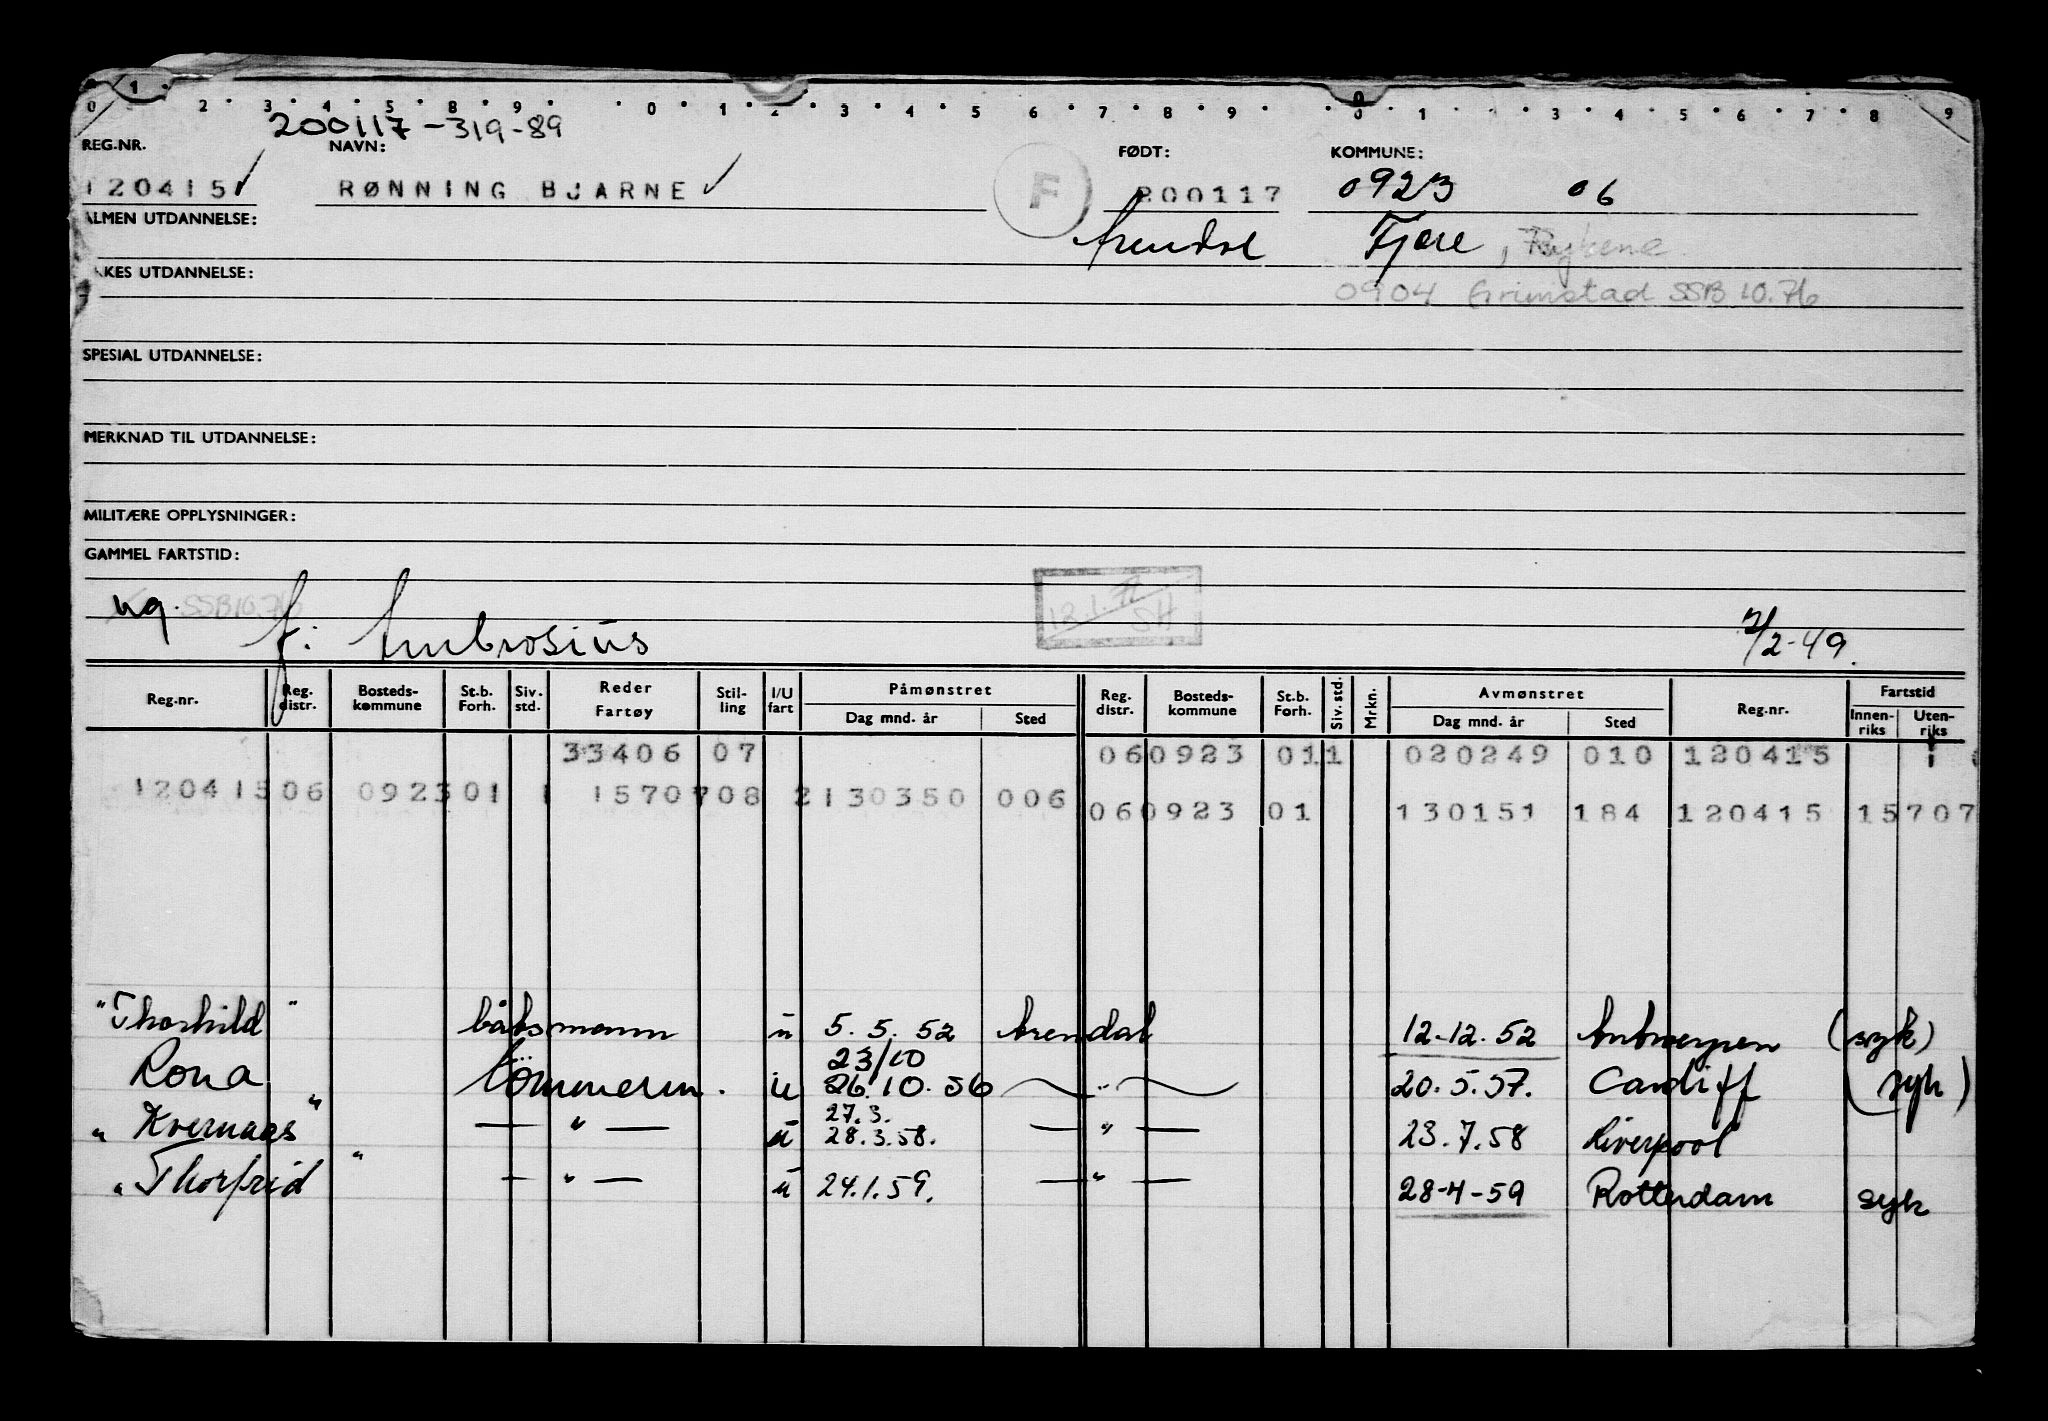 0 1 2 3 4 5 8 9 0 1 2 3 4 5 6 7 8 9 0 1 3 4 5 6 7 8 9
200117-319-89
REG.NR. NAVN: FØDT: KOMMUNE:
120415 ✓ RØNNING BJARNE ✓ F 200117 0923 06
ALMEN UTDANNELSE: Arendal Fjære,
AKES UTDANNELSE:
0904 Grimstad SSB 10.76
SPESIAL UTDANNELSE:
MERKNAD TIL UTDANNELSE:
MILITÆRE OPPLYSNINGER:
GAMMEL FARTSTID:
ug. SSB 10.76 SH
f: Ambrosius 2/2-49.
Reg.nr. Reg. distr. Bosteds-kommune St.b. Forh. Siv. std. Reder Fartøy Stil-ling I/U fart Påmønstret Dag mnd. år Sted Reg. distr. Bosteds-kommune St.b. Forh. Siv. std. Mrkn. Avmønstret Dag mnd. år Sted Reg.nr. Fartstid Innen-riks Uten-riks
33406 07 06 0923 01 1 020249 010 120415 1
120415 06 0923 01 1 15707 08 2 130350 006 06 0923 01 130151 184 120415 15707
"Thorhild" båtsmann u 5.5.52 Arendal 12.12.52 Antwerpen (syk)
23/10
Rona tömmerm. u 26.10.56 — " — 20.5.57. Cardiff (syk)
27.3.
"Kvernaas" — " — u 28.3.58. — " — 23.7.58 Liverpool
"Thorfrid" — " — u 24.1.59. — " — 28-4-59 Rotterdam syk